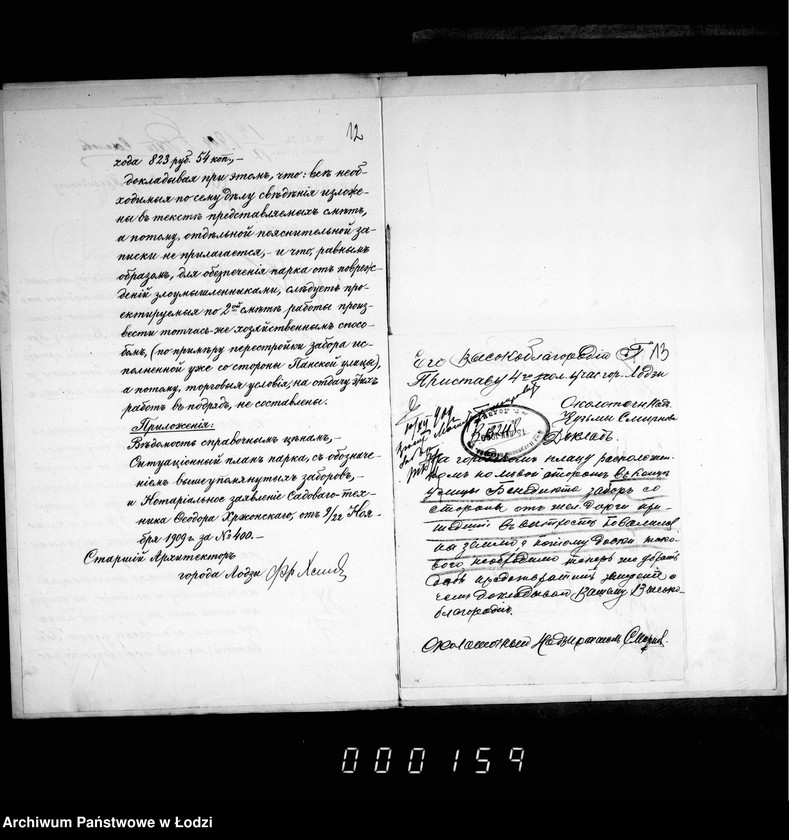 12
хода 823 руб. 54 коп.,–
докладывая при этомъ, что: всѣ необ-
ходимыя по сему дѣлу свѣдѣнія изложе-
ны въ текстѣ представляемыхъ смѣтъ,
а потому, отдѣльной пояснительной за-
писки не прилагается,– и что, равнымъ
образомъ, для обезпеченія парка отъ повреж-
деній злоумышленниками, слѣдуетъ про-
ектируемыя по 2ой смѣтѣ работы произ-
вести тотчасъ-же хозяйственнымъ спосо-
бомъ, (по примѣру перестройки забора ис-
полненной уже со стороны Панской улицы),
а потому, торговыя условія, на отдачу этихъ
работъ въ подрядъ, не составлены.
Приложенія:
Вѣдомость справочнымъ цѣнамъ,–
Ситуаціонный планъ парка, съ обозначе-
ніемъ вышеупомянутыхъ заборовъ,–
и Нотаріальное заявленіе Садоваго-тех-
ника Ѳеодора Хржонскаго, отъ 9/22 Ноя-
бря 1909 г. за № 400.–
Старшій Архитекторъ
города Лодзи
13
Его Высокоблагородію Г
Приставу 4го уч. гор. Лодзи
Околоточн. Над.
Кузьмы Смирнова
Докладъ.
На городскомъ плацу расположен-
номъ по лѣвой сторонѣ въ концѣ
улицы Бенедикта заборъ со
стороны отъ жел. дороги при-
шедшій въ ветхость повалился
на землю, потому доски тако-
вого необходимо теперь же убрать
дабы предотвратить
чемъ докладываю Вашему Высоко-
благородію.
Околоточный Надзиратель Смирнов.
000159
Archiwum Państwowe w Łodzi